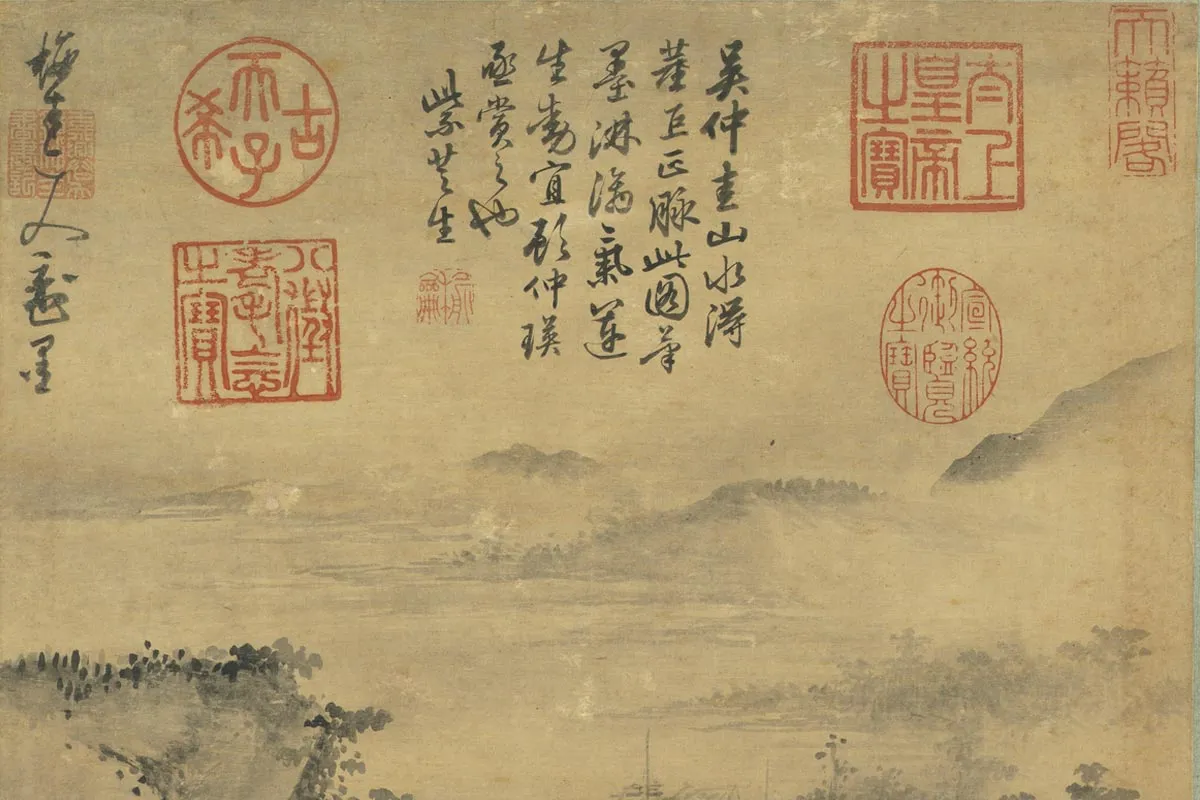 天籟閣
太上
皇帝
之寶
宣統
御覽
之寶
吳仲圭山水得
董巨正脉此圖筆
墨淋漓氣運
生動宜顧仲瑛
亟賞之也
紫芝生
古希天子
八徵
耄念
之寶
梅道人戲墨